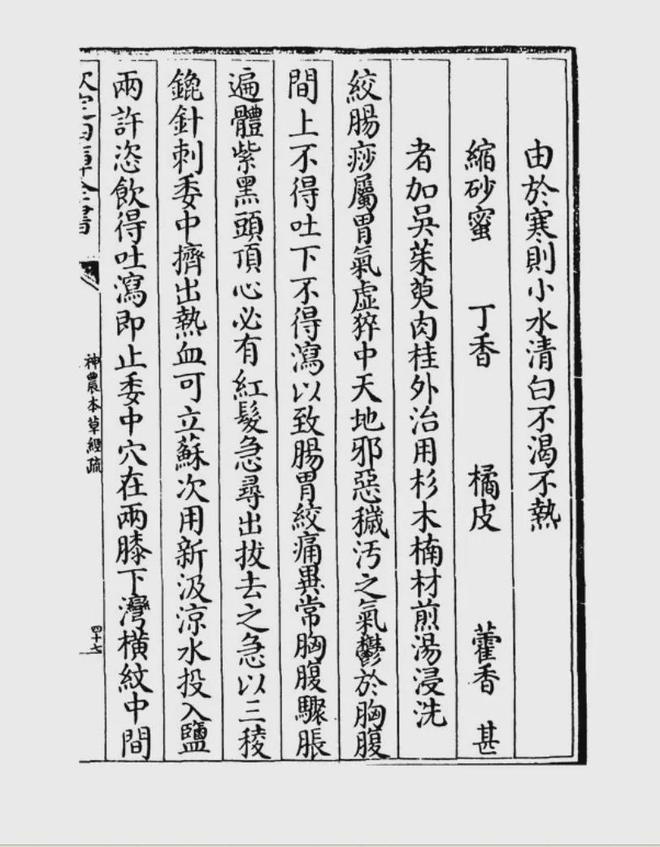 由於寒則小水清白不渴不熱
縮砂蜜 丁香 橘皮 藿香 甚
者加吳茱萸肉桂外治用杉木楠材煎湯浸洗
絞腸痧屬胃氣虛猝中天地邪惡穢汚之氣鬱於胸腹
間上不得吐下不得瀉以致腸胃絞痛異常胸腹驟脹
遍體紫黑頭頂心必有紅髮急尋出拔去之急以三稜
鎞針刺委中擠出熱血可立蘇次用新汲涼水投入鹽
兩許恣飲得吐瀉即止委中穴在兩膝下灣橫紋中間
欽定四庫全書
神農本草經疏
四十七